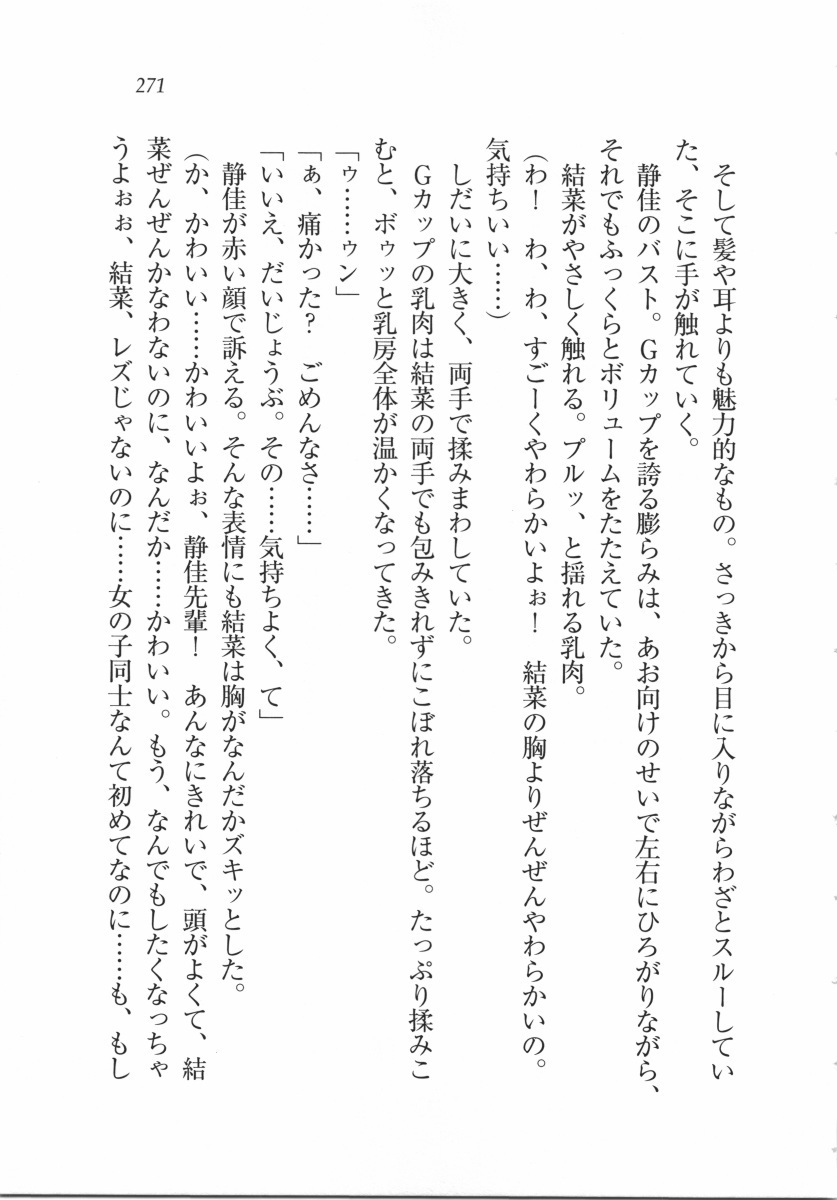 271
そして髪や耳よりも魅力的なもの。さっきから目に入りながらわざとスルーしてい
た、そこに手が触れていく。
静佳のバスト。Gカップを誇る膨らみは、あお向けのせいで左右にひろがりながら、
それでもふっくらとボリュームをたたえていた。
結菜がやさしく触れる。プルッ、と揺れる乳肉。
（わ！　わ、わ、すごーくやわらかいよぉ！　結菜の胸よりぜんぜんやわらかいの。
気持ちいい……）
しだいに大きく、両手で揉みまわしていた。
Gカップの乳肉は結菜の両手でも包みきれずにこぼれ落ちるほど。たっぷり揉みこ
むと、ボゥッと乳房全体が温かくなってきた。
「ゥ……ゥン」
「ぁ、痛かった？　ごめんなさ……」
「いいえ、だいじょうぶ。その……気持ちよく、て」
静佳が赤い顔で訴える。そんな表情にも結菜は胸がなんだかズキッとした。
（か、かわいい……かわいいよぉ、静佳先輩！　あんなにきれいで、頭がよくて、結
菜ぜんぜんかなわないのに、なんだか……かわいい。もう、なんでもしたくなっちゃ
うよぉぉ、結菜、レズじゃないのに……女の子同士なんて初めてなのに……も、もし